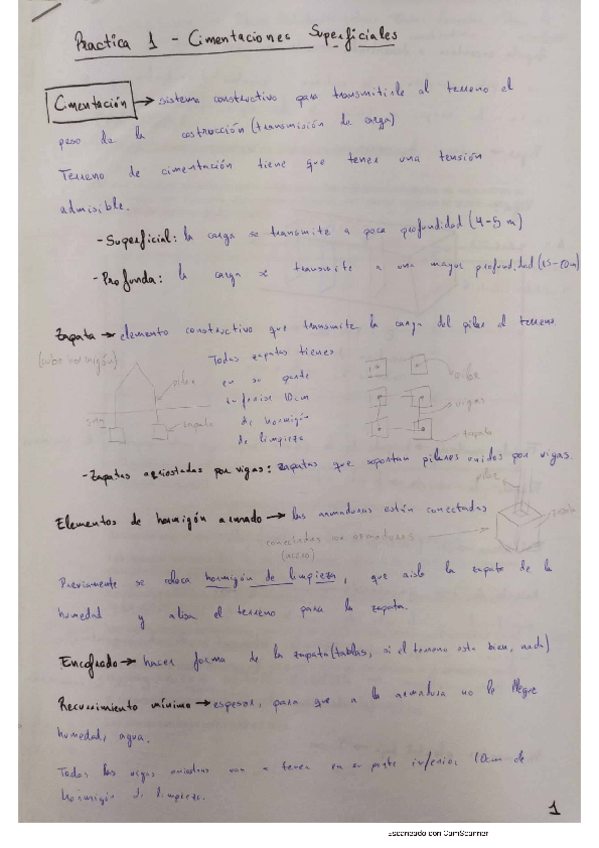 Practica 1 - Cimentaciones Superficiales
Cimentación → sistema constructivo para transmitirle al terreno el
peso de la costrucción (transmisión de carga)
Terreno de cimentación tiene que tener una tensión
admisible.
- Superficial: la carga se transmite a poca profundidad (4-5 m)
- Profunda: la carga se transmite a una mayor profundidad (15-20m)
Zapata → elemento constructivo que transmite la carga del pilar al terreno
(cubo hormigón)
pilar
zapata
Todas zapatas tienen
en su parte
inferior 10cm
de hormigón
de limpieza
pilar
vigas
zapata
- Zapatas arriostadas por vigas: zapatas que soportan pilares unidos por vigas.
pilar
zapata
Elementos de hormigón armado → las armaduras están conectadas
conectadas armaduras
(acero)
Previamente se coloca hormigón de limpieza, que aisla la zapata de la
humedad y alisa el terreno para la zapata.
Encofrado → hacer forma de la zapata (tablas, si el terreno esta bien, nada)
Recubrimiento mínimo → espesor, para que a la armadura no le llegue
humedad, agua.
Todas las vigas van a tener en su parte inferior 10cm de
hormigón de limpieza.
1
Escaneado con CamScanner